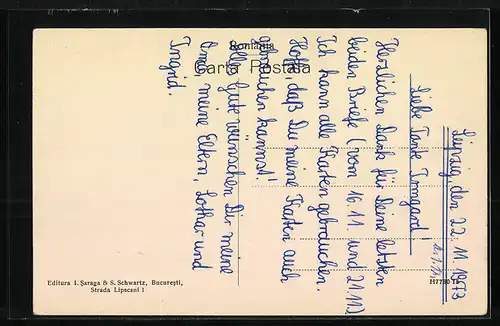 Romania
Carta Postala
Leipzig, den 22. 11. 1973
Liebe Tante Irmgard!
Herzlichen Dank für Deine letzten
beiden Briefe (vom 16.11. und 21.11.)
Ich kann alle Karten gebrauchen.
Hoffe, daß Du meine Karten auch
gebrauchen kannst!
Alles Gute wünschen Dir meine
Oma, meine Eltern, Lothar und
Ingrid.
Editura I. Șaraga & S. Schwartz, București,
Strada Lipscani 1